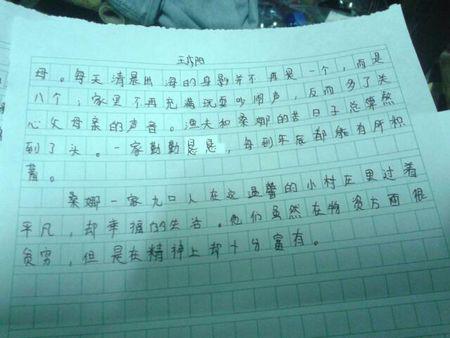 母。每天清晨出海的身影并不再是一个，而是
八个；家里不再充满玩耍吵闹声，反而多了关
心父母亲的声音。渔夫和桑娜的苦日子总算熬
到了头。一家勤勤恳恳，每到年底都能有所积
蓄。
桑娜一家九口人在这普普的小村庄里过着
平凡，却幸福的生活。他们虽然在物质方面很
贫穷，但是在精神上却十分富有。